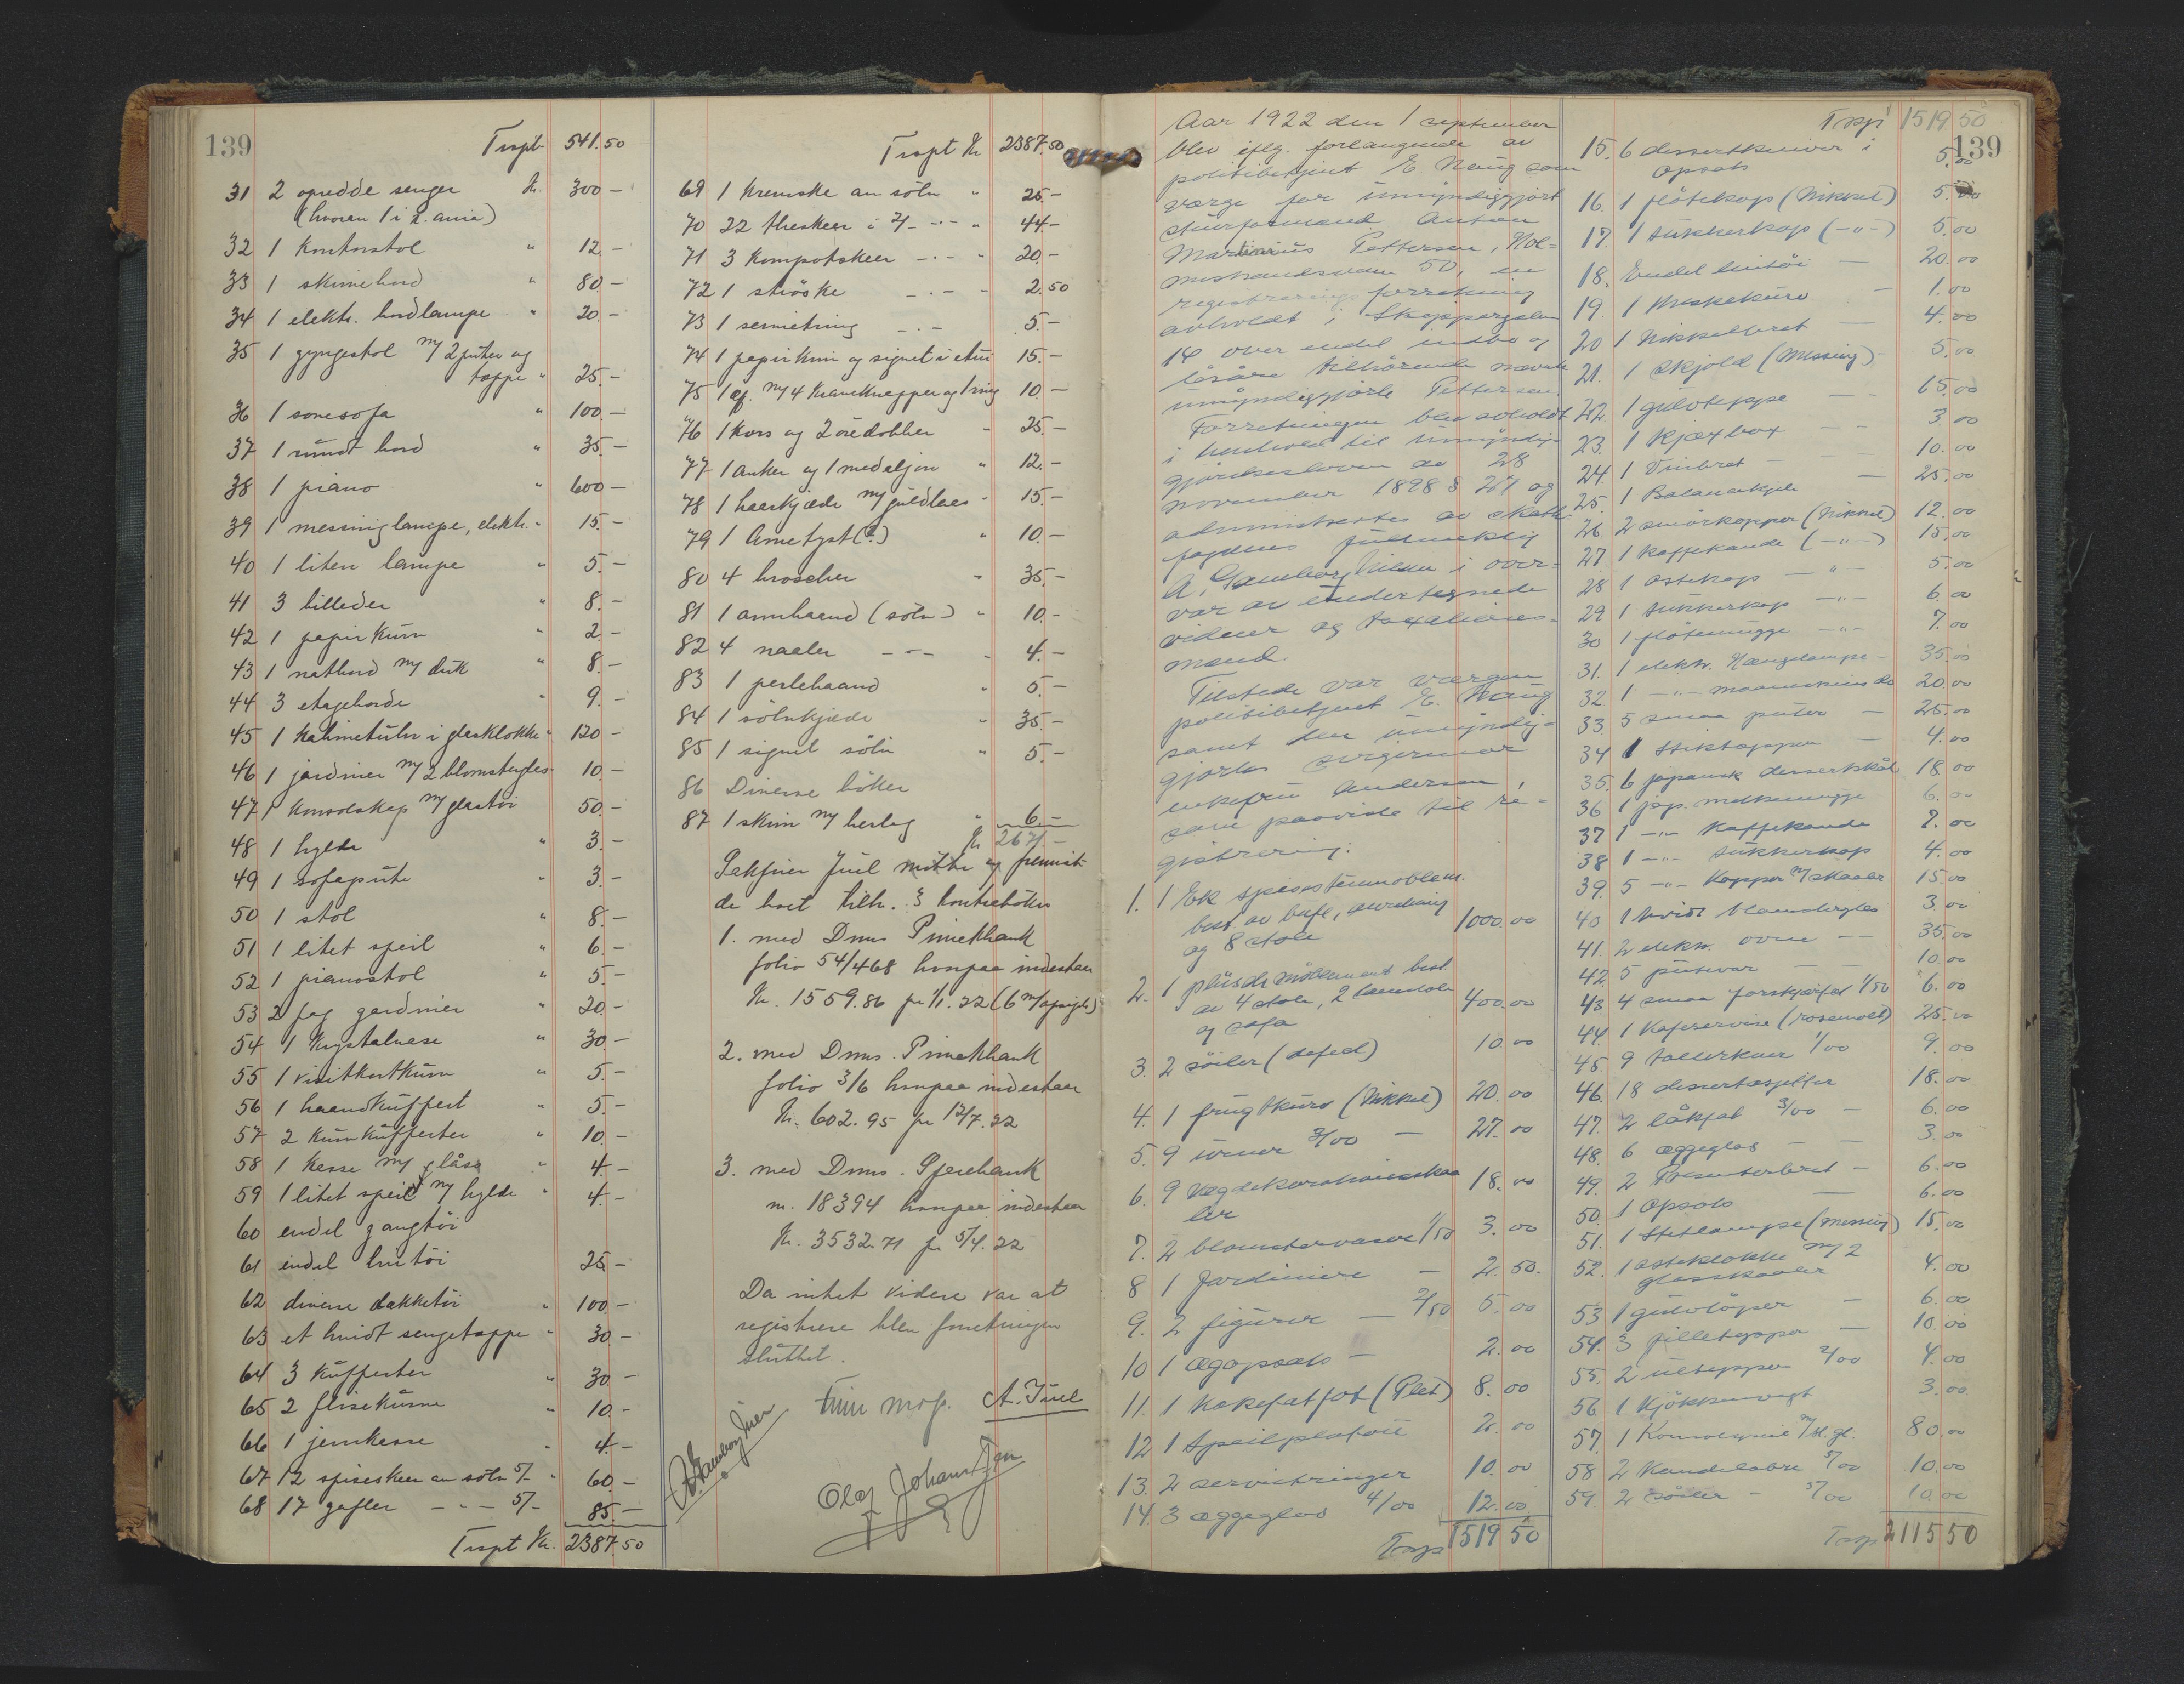 139
Trspt. 541.50
31 2 opredde senger Kr. 300 –
(hvorav 1 i 2. arie)
32 1 kontorstol " 12. –
33 1 skrivebord " 80 –
34 1 elektr. bordlampe " 20. –
35 1 gyngestol m/ 2 puter og
teppe " 25. –
36 1 sovesofa " 100. –
37 1 rundt bord " 35. –
38 1 piano " 600 –
39 1 messinglampe, elektr. " 15. –
40 1 liten lampe " 5. –
41 3 billeder " 8. –
42 1 papirkurv " 2. –
43 1 natbord m/ duk " 8. –
44 3 etageborde " 9. –
45 1 kabinetuhr i glasklokke " 120 –
46 1 jardinier m/ 2 blomsterglas " 10. –
47 1 konsolskap m/ glastøi 50. –
48 1 hylde " 3. –
49 1 sofapute " 3. –
50 1 stol " 8. –
51 1 litet speil " 6. –
52 1 pianostol " 5. –
53 2 fag gardiner " 20. –
54 1 krystalvase " 30. –
55 1 visitkortkurv " 5. –
56 1 haandkuffert " 5. –
57 2 kurvkufferter " 10. –
58 1 kasse m/ låse " 4. –
59 1 litet speil m/ hylde " 4. –
60 endel gangtøi
61 endel lintøi 25. –
62 diverse dækketøi " 100. –
63 et hvidt sengeteppe " 30. –
64 3 kufferter " 30. –
65 2 flisekurve " 10. –
66 1 jernkasse " 4. –
67 12 spiseskeer av sølv 5/- " 60. –
68 17 gafler – " – 5/- 85. –
Trspt Kr. 2387.50
Trspt Kr 2387.50
69 1 kremske av sølv " 25. –
70 22 theskeer i 2/- – " – " 44. –
71 3 kompotskeer – " – " 20. –
72 1 strøske – " – " 2.50
73 1 servietring – " – 5. –
74 1 papirkniv og signet i etui 15. –
75 1 æs. m/ 4 kraveknapper og 1 ring 10. –
76 1 kors og 2 øredobber " 25. –
77 1 anker og 1 medaljon " 12. –
78 1 haarkjæde m/ guldlaas " 15. –
79 1 Ametyst (?) " 10. –
80 4 broscher " 35. –
81 1 armbaand (sølv) " 10. –
82 4 naaler – " – " 4. –
83 1 perlebaand " 5. –
84 1 sølvkjæde " 35. –
85 1 signet sølv " 5. –
86 Diverse bøker
87 1 skrin m/ beslag " 6. –
Kr 2671 –
Sakfører Juel møtte og fremviste
de boet tilh. 3 kontrabøker
1. med Dnns Privatbank
folio 54/468 hvorpaa indestaar
Kr. 1559.86 pr 1/1. 22 (6 m/ opsigelse)
2. med Dnns. Privatbank
folio 3/6 hvorpaa indestaar
Kr. 602.95 pr 12/7.22
3. med Dnns. Sparebank
nr. 18394 hvorpaa indestaar
Kr. 3532.71 pr 5/4.22
Da intet videre var at
registrere blev forretningen
sluttet.
A. Juel
Olaf Johansen
Aar 1922 den 1 september
blev iflg. forlangende av
politibetjent E. Haug som
værge for umyndiggjort
stuerformand Anton
Martinius Pettersen, Hol-
mestrandsveien 50, en
registrerings forretning
avholdt i Skoppergaten
14 over endel indbo og
løsøre tilhørende nævnte
umyndiggjorte Pettersen
Forretningen blev avholdt
i henhold til umyndig-
gjørelsesloven av 28
november 1898 § 27 og
administrertes av skatte-
fogdens fuldmektig
A. Gamborg Nilsen i over-
vær av undertegnede
vidner og taxations-
mænd.
Tilstede var værgen
politibetjent E. Haug
samt den umyndig-
gjortes svigermor
enkefru Andersen,
som paaviste til re-
gistrering.
1. 1 Ek spisestuemøblem.
best. av buffe, anretning
og 8 stole 1000.00
2. 1 plüschmøblement best.
av 4 stole, 2 lænestole
og sofa 400.00
3. 2 søiler (defect) 10.00
4. 1 frugtkurv (Nikkel) 20.00
5. 9 3/00 – 27.00
6. 9 vægdekorationsskaa
ler 18.00
7. 2 blomstervaser 1/50 3.00
8 1 Jardiniere – 2.50.
9. 2 figurer – 2/50 5.00
10 1 ægopsats – 2.00
11. 1 kakefatfot (Plet) 8.00
12 1 speilplataa 2.00
13. 2 servietringer 10.00
14. 3 æggeglas 4/00 12.00
Trsp 1519 50
Trsp 1519 50
139
15. 6 dessertkniver i
opsats 5.00
16. 1 fløtekop (Nikkel) 5.00
17. 1 sukkerkop (–"–) 5.00
18. Endel lintøi – 20.00
19. 1 Meskekurv – 1.00
20 1 Nikkelbret – 4.00
21. 1 skjold (Messing) – 5.00
22. 1 gulvteppe – – 65.00
23. 1 Kjæxbox – – 3.00
24. 1 Vinbret – – 10.00
25. 1 – 25.00
26. 2 smørkopper (Nikkel) 12.00
27. 1 kaffekande (–"–) 15.00
28 1 ostekop – " – 5.00
29 1 sukkerkop –"– 6.00
30 1 fløtemugge –"– 7.00
31. 1 elektr. Hængelampe – 35.00
32. 1 –"– maaneskins do 20.00
33. 5 smaa puter – 25.00
34 1 stikteppe – 4.00
35. 6 japansk dessertskål 18.00
36 1 jap. melkemugge 6.00
37 1 –"– Kaffekande 7.00
38 1 –"– sukkerkop 4.00
39. 5 –"– Kopper m/ skaaler 15.00
40 1 hvidt blomsterglas 3.00
41. 2 elektr. ovne – – 35.00
42. 5 putevar – – 10.00
43. 4 smaa 1/50 6.00
44. 1 Kafeservise (rosemalt) 25.00
45. 9 tallerkner 1/00 9.00
46. 18 dessertasjetter 18.00
47. 2 låkfat 3/00 – 6.00
48. 6 æggeglas – – 3.00
49. 2 Presenterbret – 6.00
50. 1 Opsats – 6.00
51. 1 (messing) 15.00
52. 1 osteklokke m/ 2
glasskaaler 4.00
53 1 gulvløper – 6.00
54. 3 filletepper – 10.00
55. 2 ultepper 2/00 4.00
56. 1 Kjøkkenvegt 3.00
57. 1 Konsolspeil m/ sl. gl. 80.00
58 2 Kandelabre 5/00 10.00
59. 2 søiler – 5/00 10.00
Trsp 2115 50